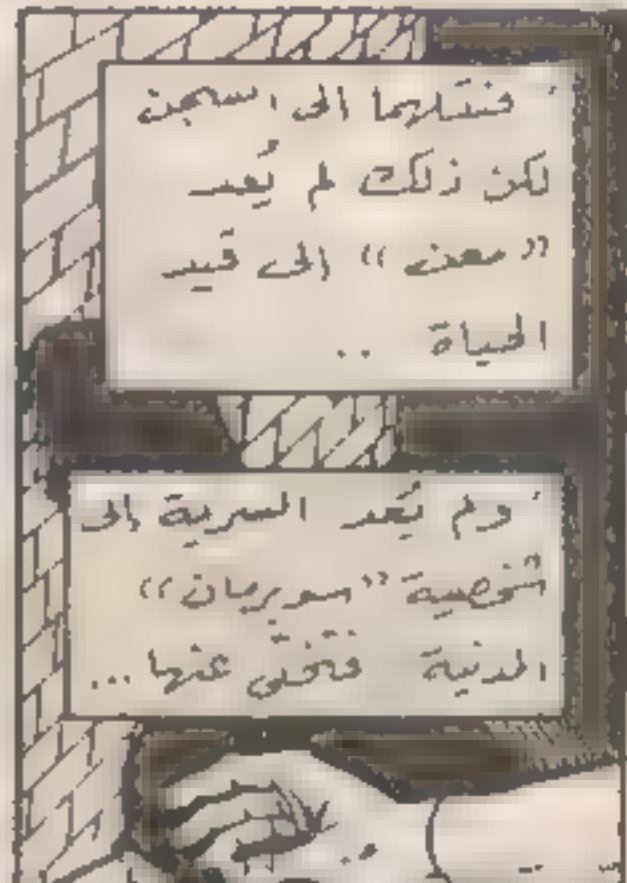 فنقلهما الى السجن
لكن ذلك لم يُعد
«معن» الى قيد
الحياة ..
ولم يُعد السرية إلى
شخصية «سوبرمان»
المدنية فتخلّى عنها ...